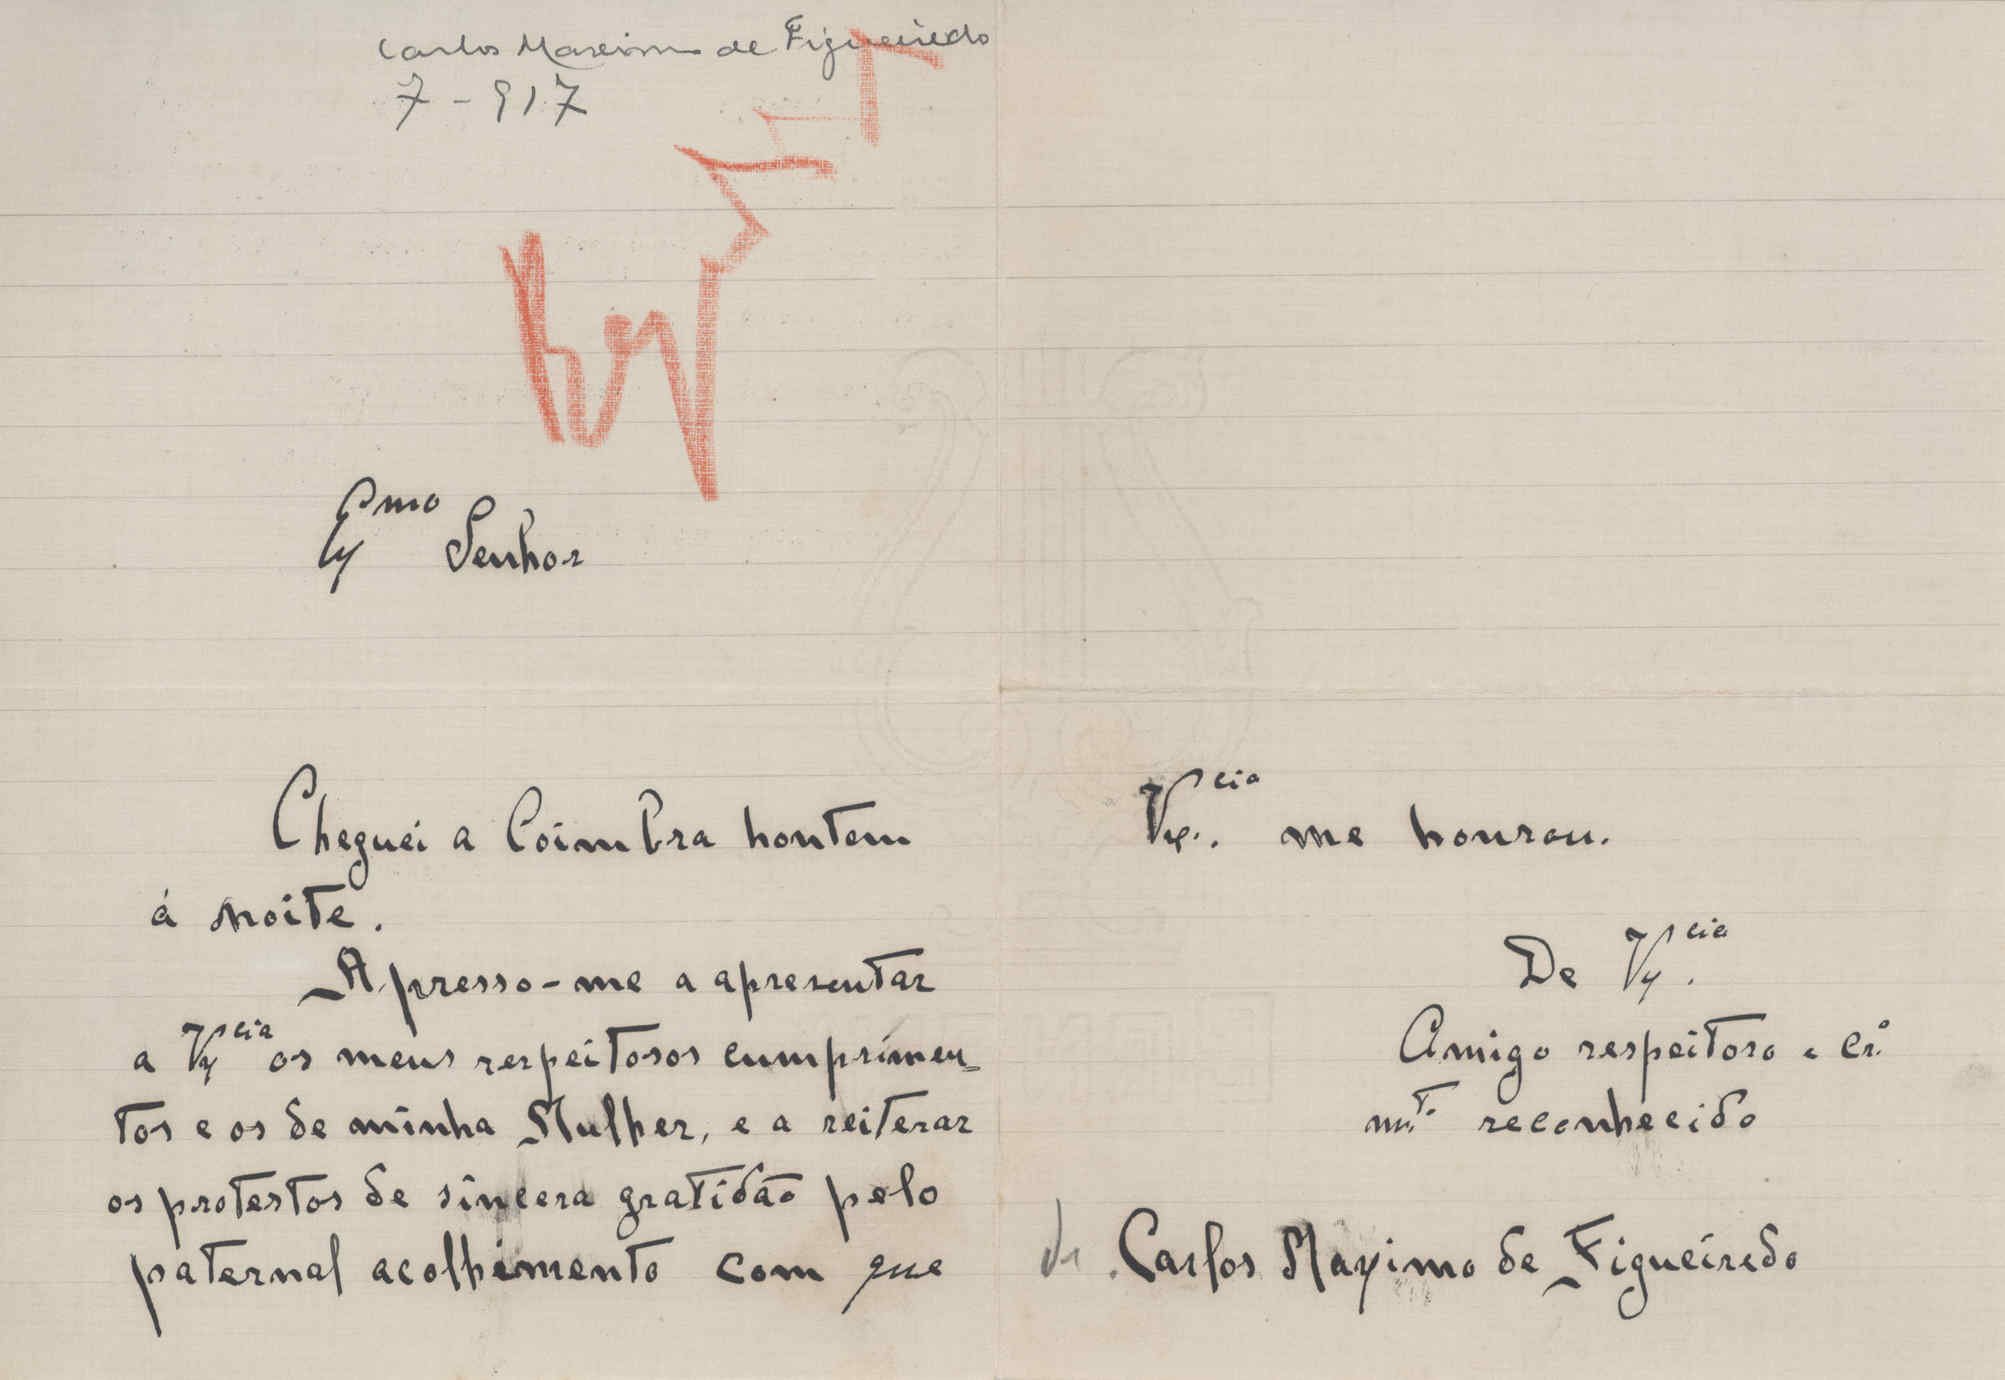 Carlos Maximo de Figueiredo
7-917
Exmo Senhor
Cheguei a Coimbra hontem
á noite.
Apresso-me a apresentar
a V Excia os meus respeitosos cumprimen-
tos e os de minha Mulher, e a reiterar
os protestos de sincera gratidão pelo
paternal acolhimento com que
V Excia. me honrou.
De V Excia.
Amigo respeitoso e Cr.º
mt.º reconhecido
Carlos Maximo de Figueiredo